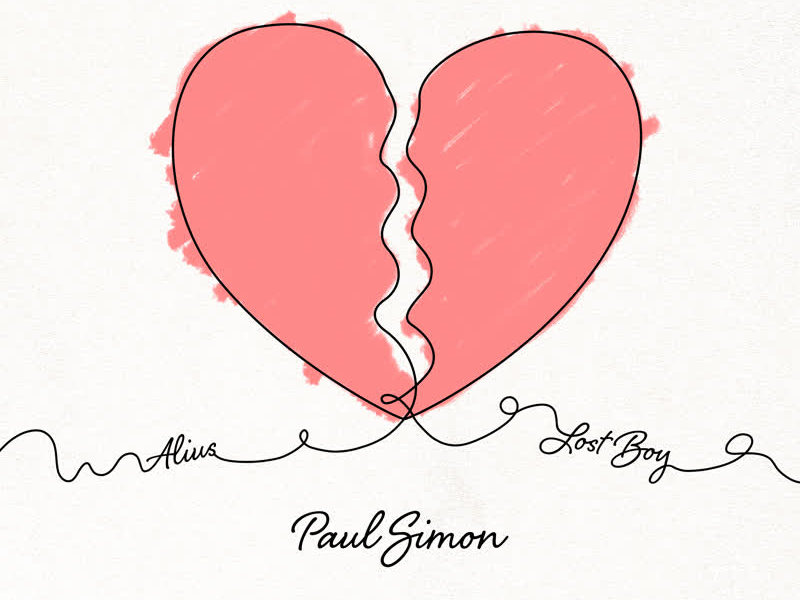 Alius Lost Boy
Paul Simon